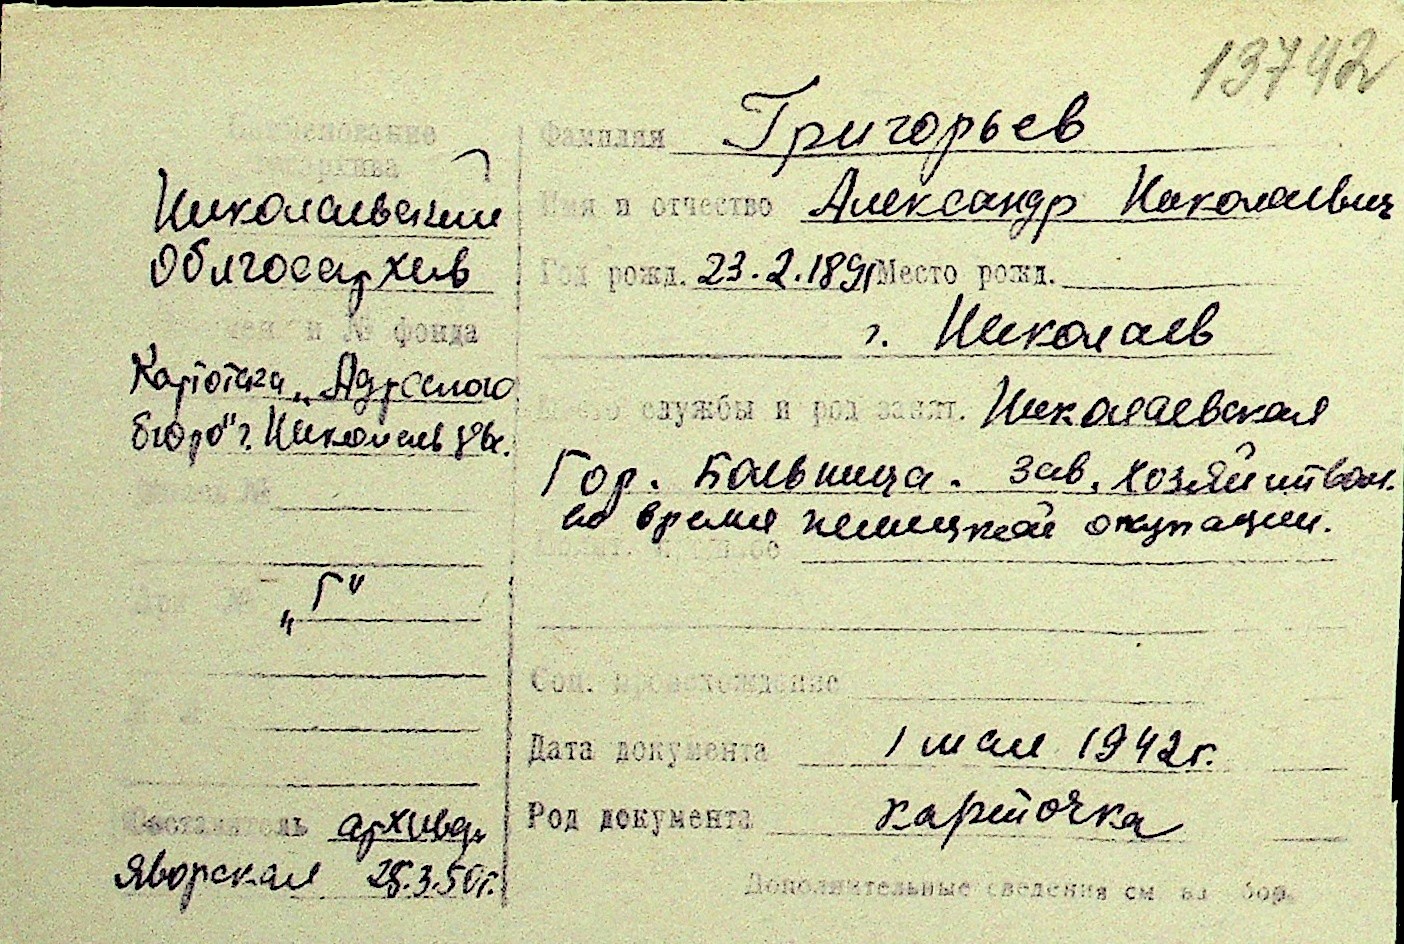 13742
Наименование
архива
Николаевский
Облгосархив
№ фонда
Картотека „Адресного
бюро" г. Николаев
„Г"
Составитель архивар
Яворская 25.3.50г.
Фамилия Григорьев
Имя и отчество Александр Николаевич
Год рожд. 23.2.1891 Место рожд.
г. Николаев
Место службы и род занят. Николаевская
Гор. Больница. Зав. хозяйством.
во время немецкой окупации.
Соц. происхождение
Дата документа 1 мая 1942г.
Род документа карточка
Дополнительные сведения см на обор.